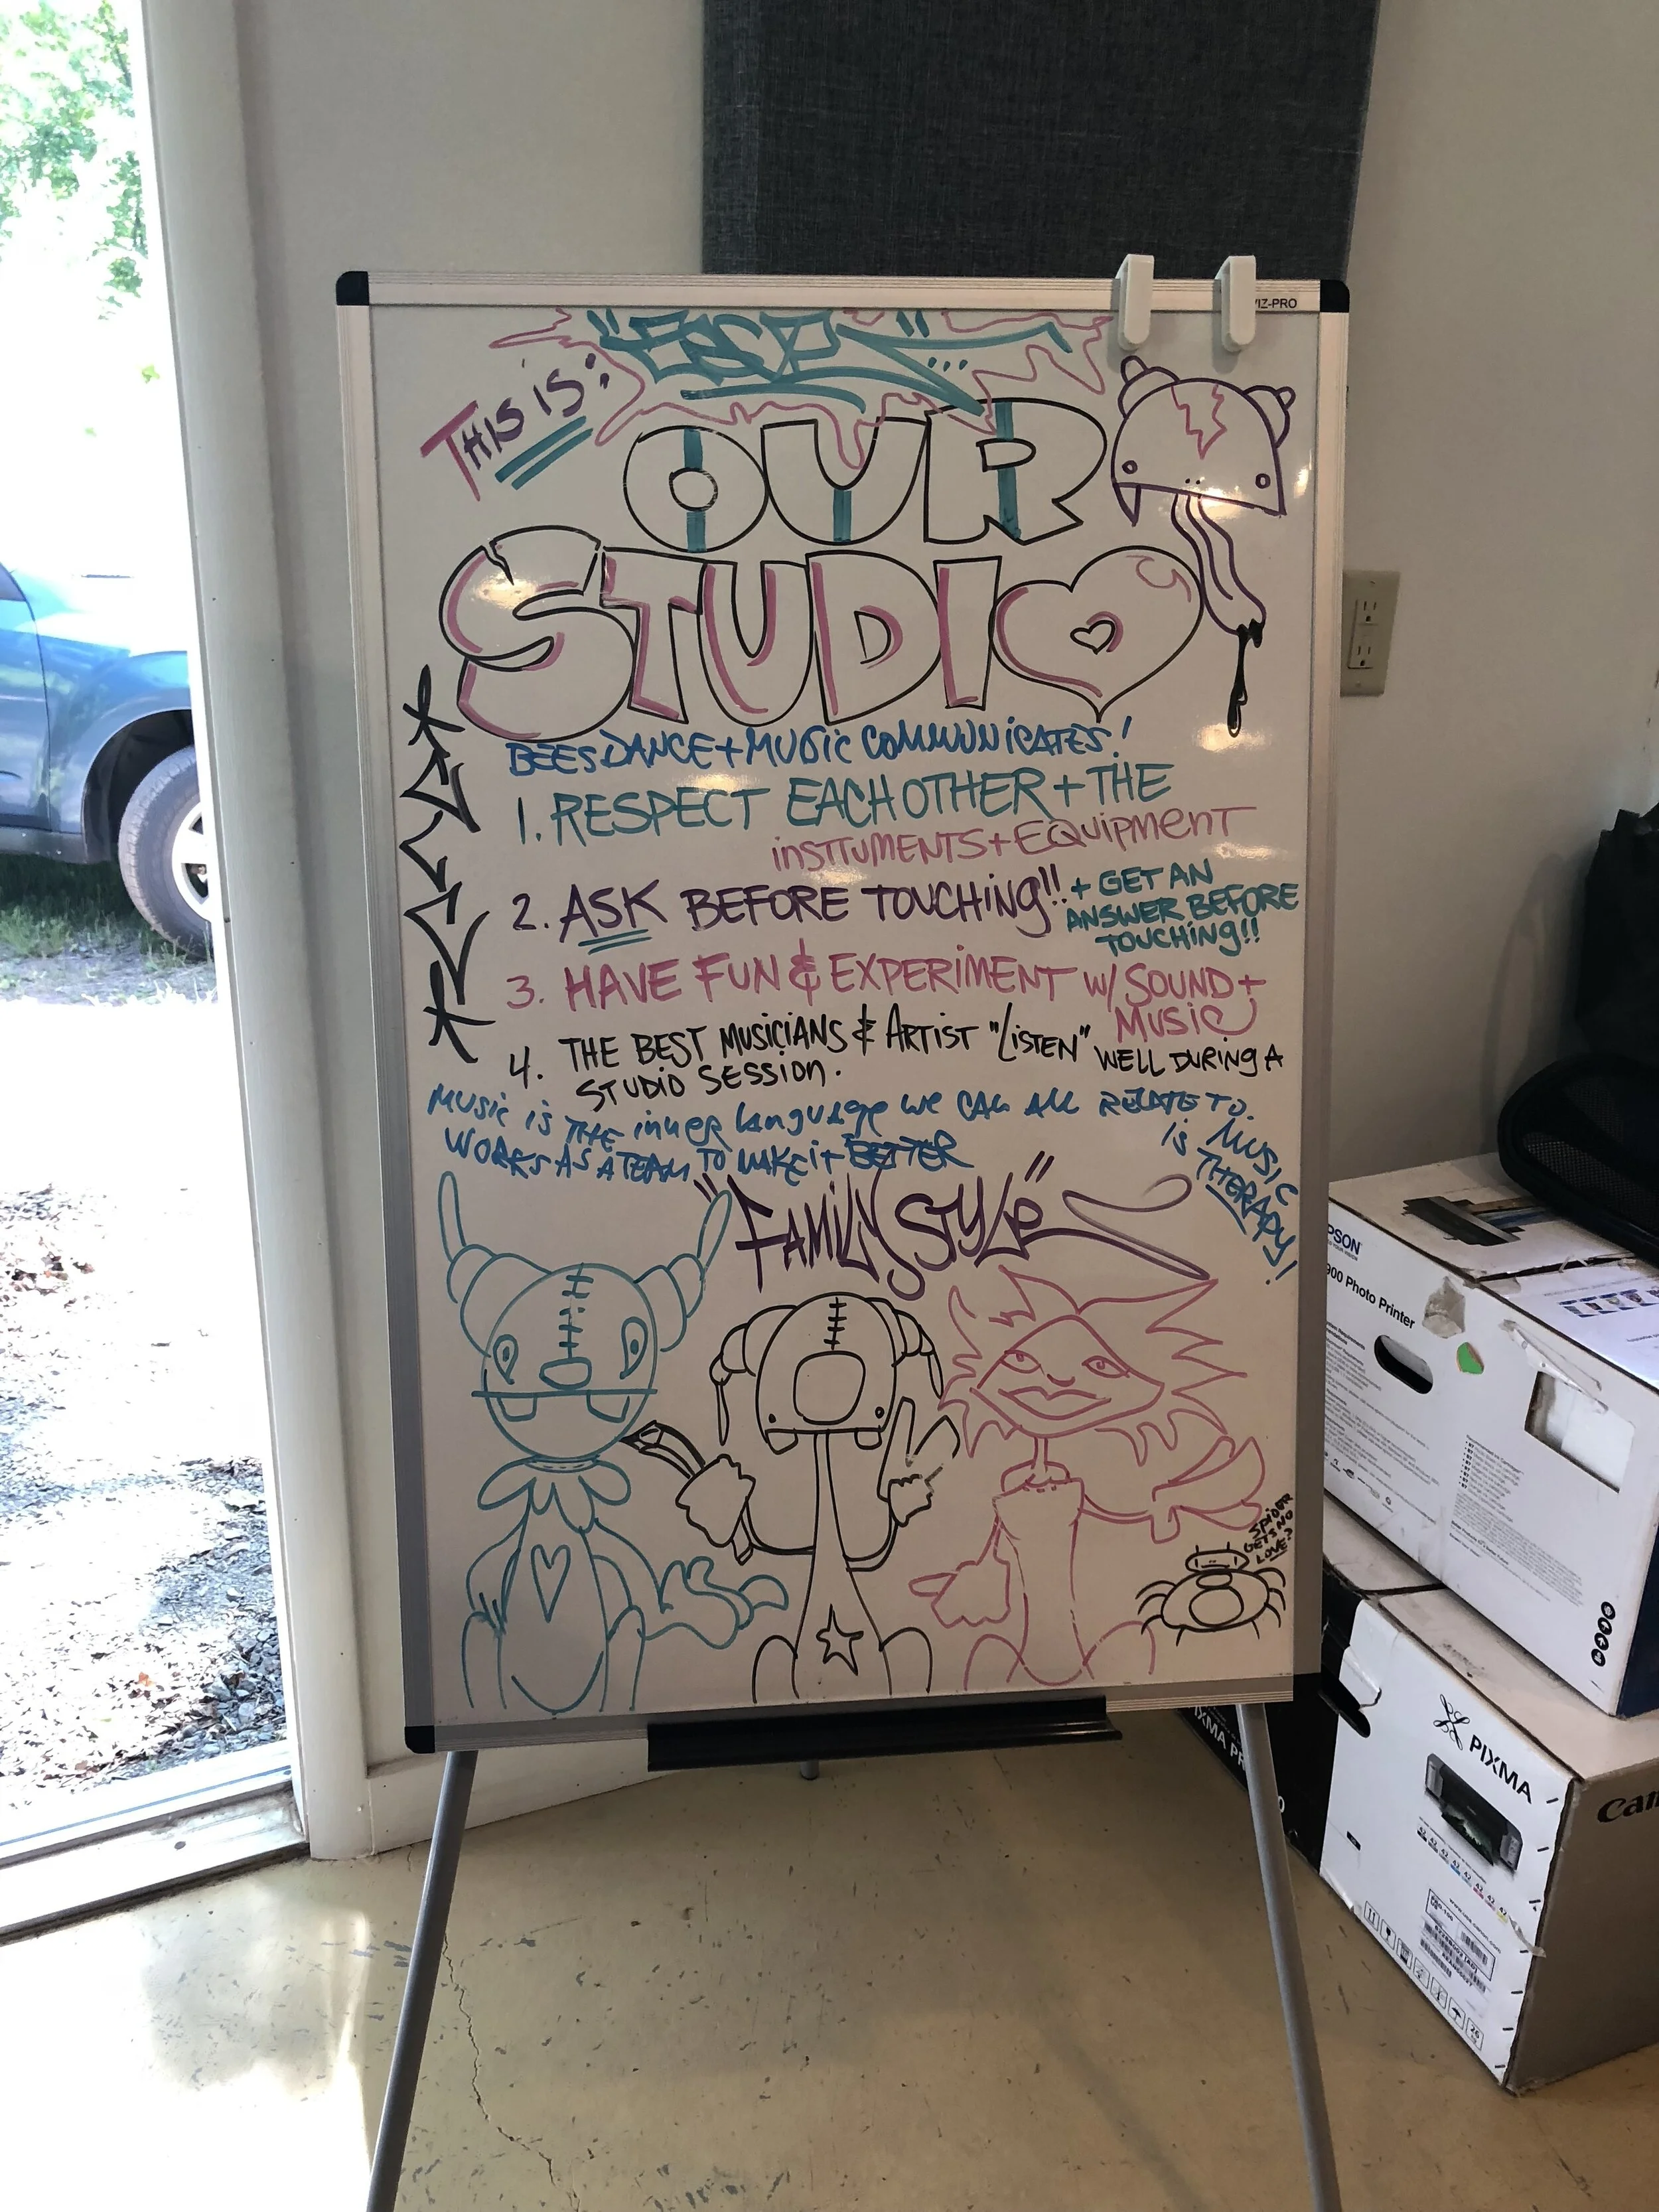 VIZ-PRO
THIS IS:
OUR
STUDIO
BEES DANCE + MUSIC COMMUNICATES!
1. RESPECT EACH OTHER + THE
INSTTUMENTS + EQUIPMENT
2. ASK BEFORE TOUCHING!! + GET AN
ANSWER BEFORE
TOUCHING!!
3. HAVE FUN & EXPERIMENT W/ SOUND +
MUSIC
4. THE BEST MUSICIANS & ARTIST "LISTEN" WELL DURING A
STUDIO SESSION.
MUSIC IS THE INNER LANGUAGE WE CAN ALL RELATE TO.
WORKS AS A TEAM TO MAKE IT BETTER
MUSIC
IS THERAPY!
"FAMILY STYLE"
SPIDER
GETS NO
LOVE?
EPSON
900 Photo Printer
PIXMA
Can
PIXMA PR